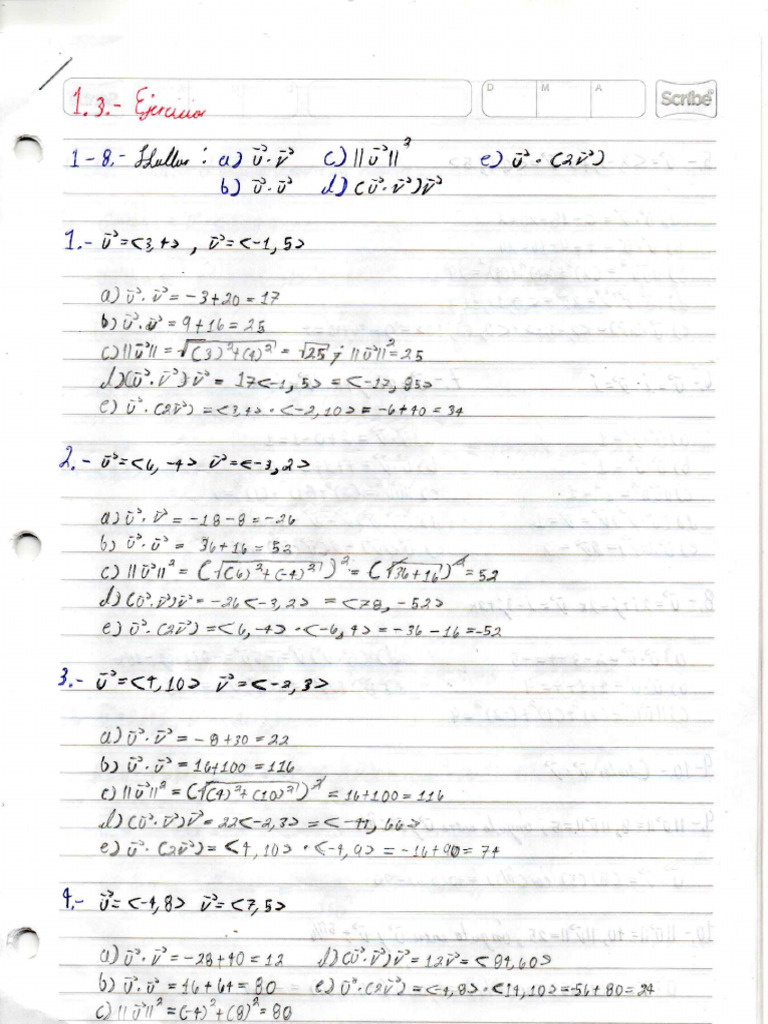 D M A
Scribe
1.3.- Ejercicios
1-8.- Hallar: a) u⃗·v⃗ c) ||u⃗||² e) u⃗·(2v⃗)
b) u⃗·u⃗ d) (u⃗·v⃗)v⃗
1.- u⃗=<3,4>, v⃗=<-1,5>
a) u⃗·v⃗ = -3+20=17
b) u⃗·u⃗ = 9+16=25
c) ||u⃗|| = √(3)²+(4)² = √25 ; ||u⃗||²=25
d) (u⃗·v⃗)·v⃗ = 17<-1,5> = <-17,85>
e) u⃗·(2v⃗) = <3,4>·<-2,10> = -6+40 = 34
2.- u⃗=<6,-4> v⃗=<-3,2>
a) u⃗·v⃗ = -18-8=-26
b) u⃗·u⃗ = 36+16=52
c) ||u⃗||² = (√(6)²+(-4)²)² = (√36+16)² = 52
d) (u⃗·v⃗)v⃗ = -26<-3,2> = <78,-52>
e) u⃗·(2v⃗) = <6,-4>·<-6,4> = -36-16=-52
3.- u⃗=<4,10> v⃗=<-2,3>
a) u⃗·v⃗ = -8+30=22
b) u⃗·u⃗ = 16+100=116
c) ||u⃗||² = (√(4)²+(10)²)² = 16+100=116
d) (u⃗·v⃗)v⃗ = 22<-2,3> = <-44,66>
4.- u⃗=<-4,8> v⃗=<7,5>
a) u⃗·v⃗ = -28+40=12 d) (u⃗·v⃗)v⃗ = 12v⃗ = <84,60>
b) u⃗·u⃗ = 16+64=80 e) u⃗·(2v⃗) = <-4,8>·<14,10> = -56+80=24
c) ||u⃗||² = (-4)²+(8)² = 80